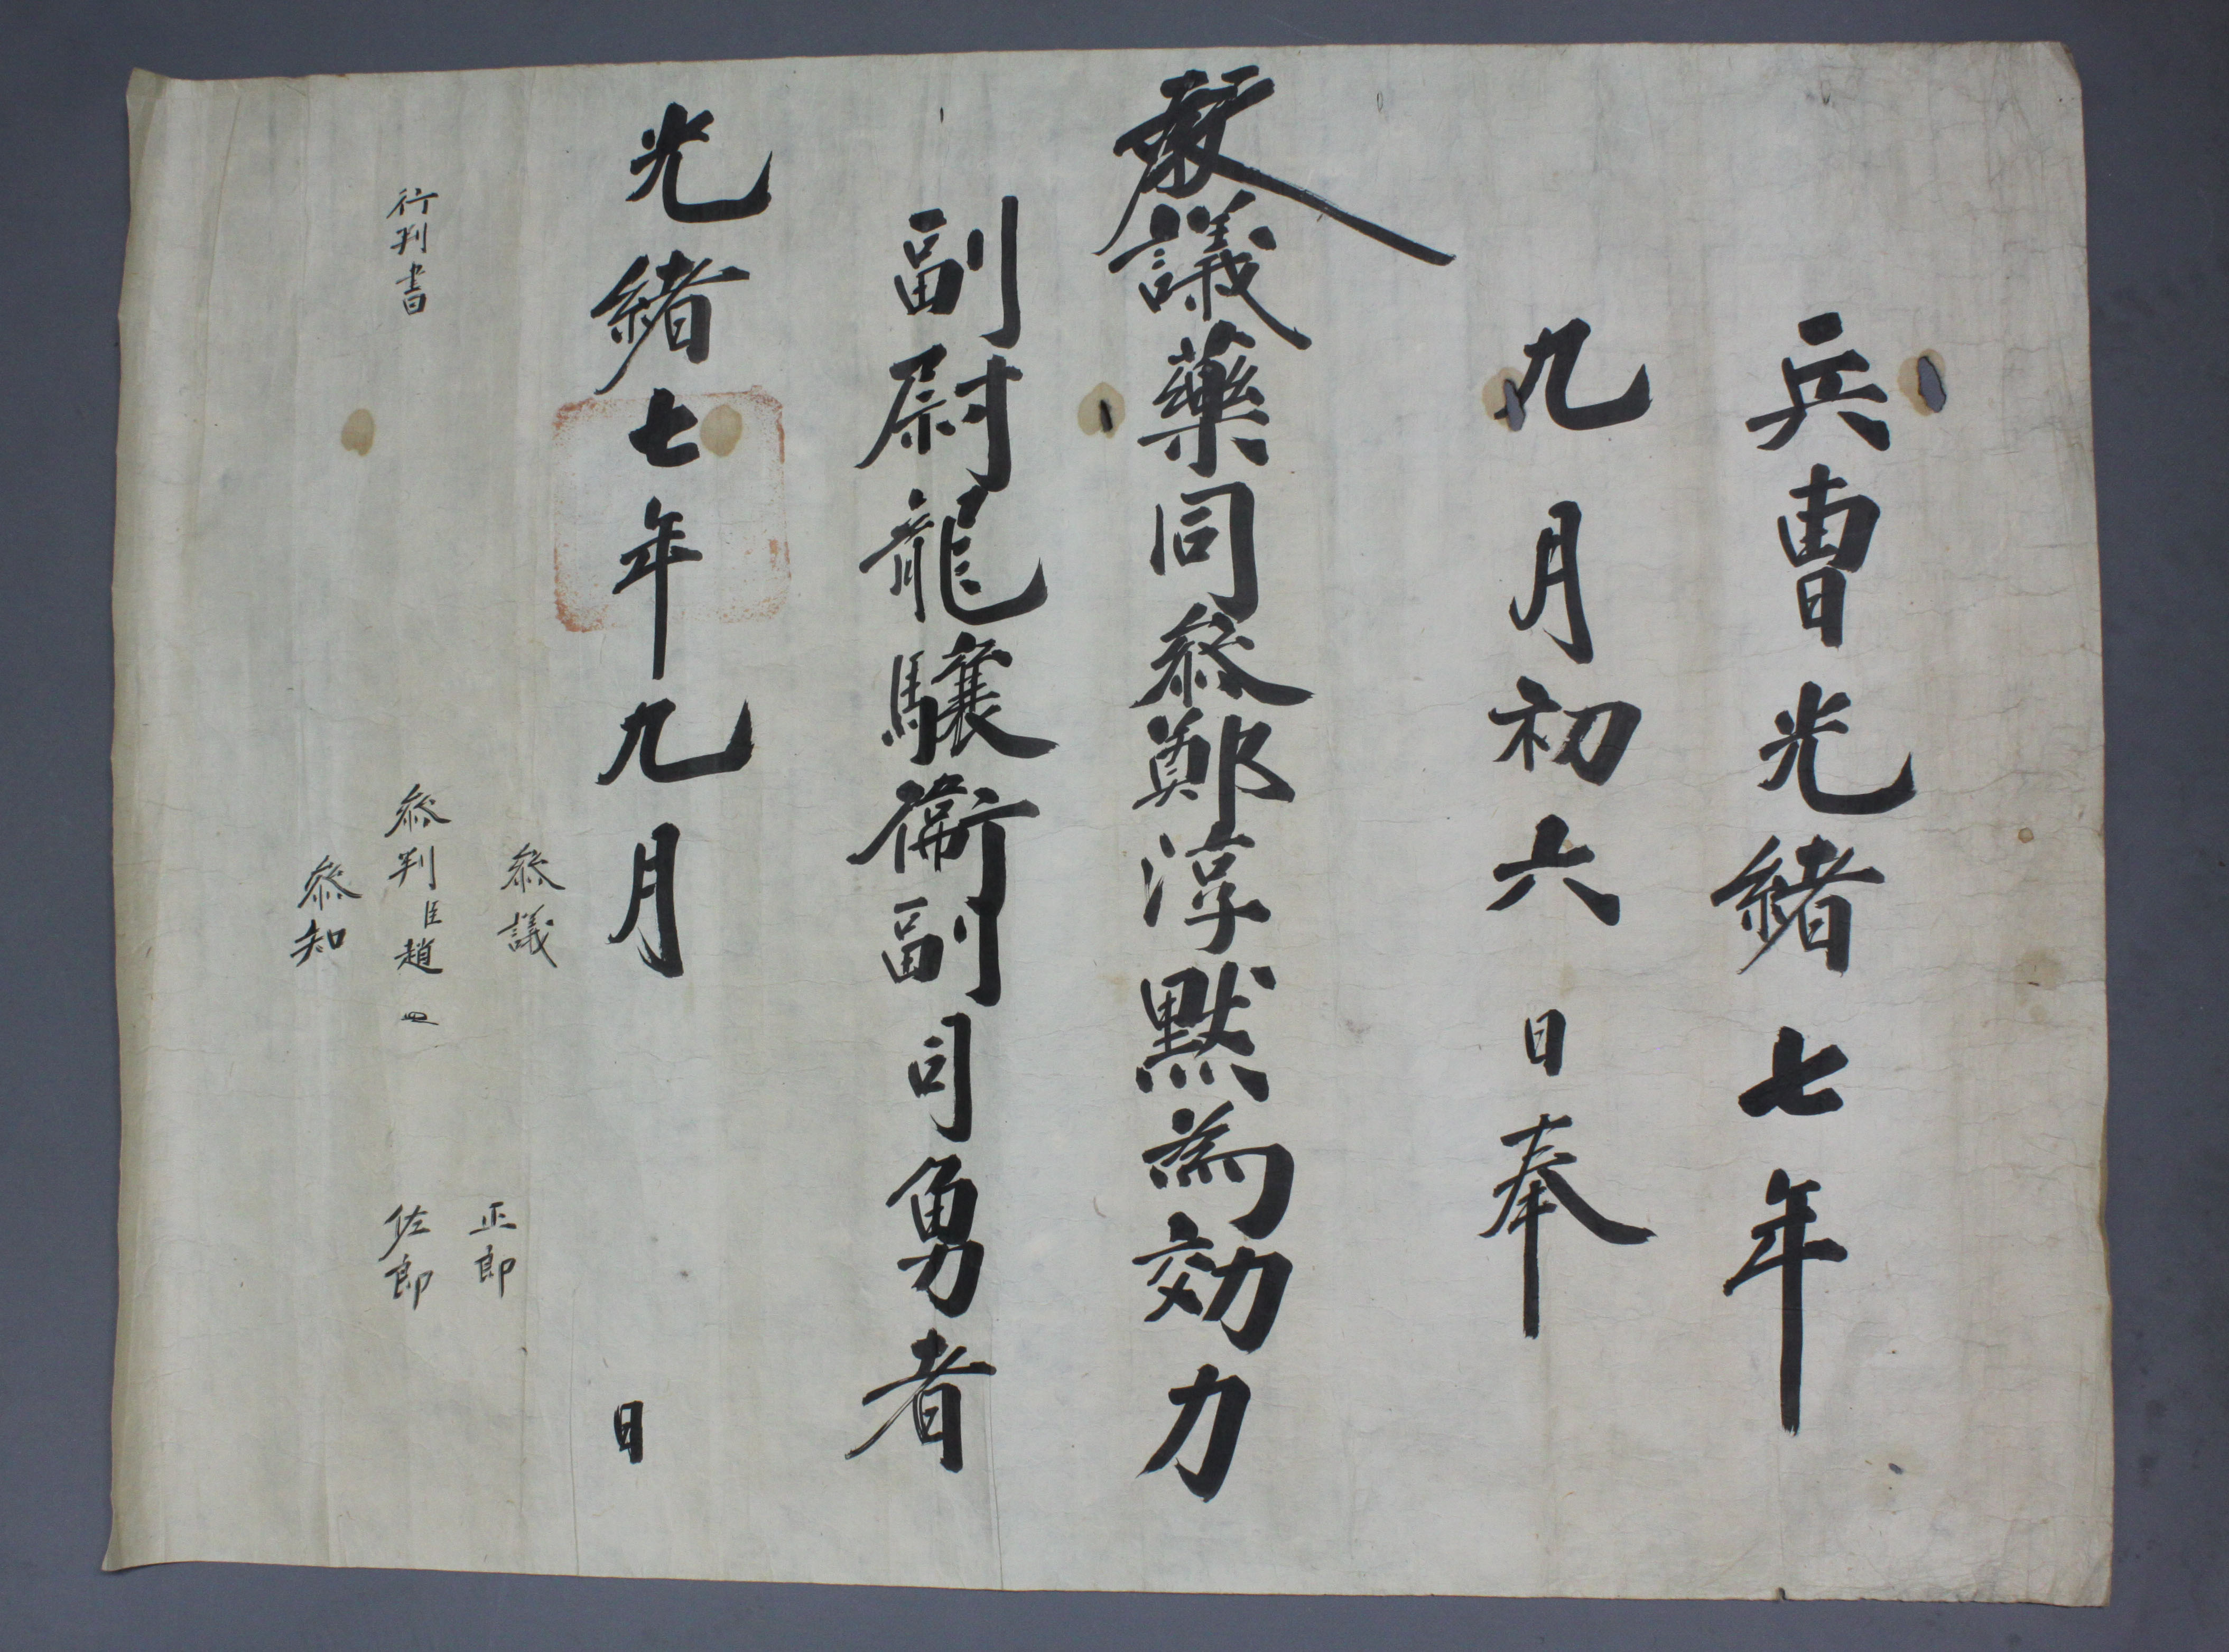 兵曺光緒七年
九月初六日奉
敎議藥同叅鄭淳黙爲効力
副尉龍驤衛副司勇者
光緒七年九月 日
叅議 正郎
行判書 叅判臣趙 佐郎
叅知